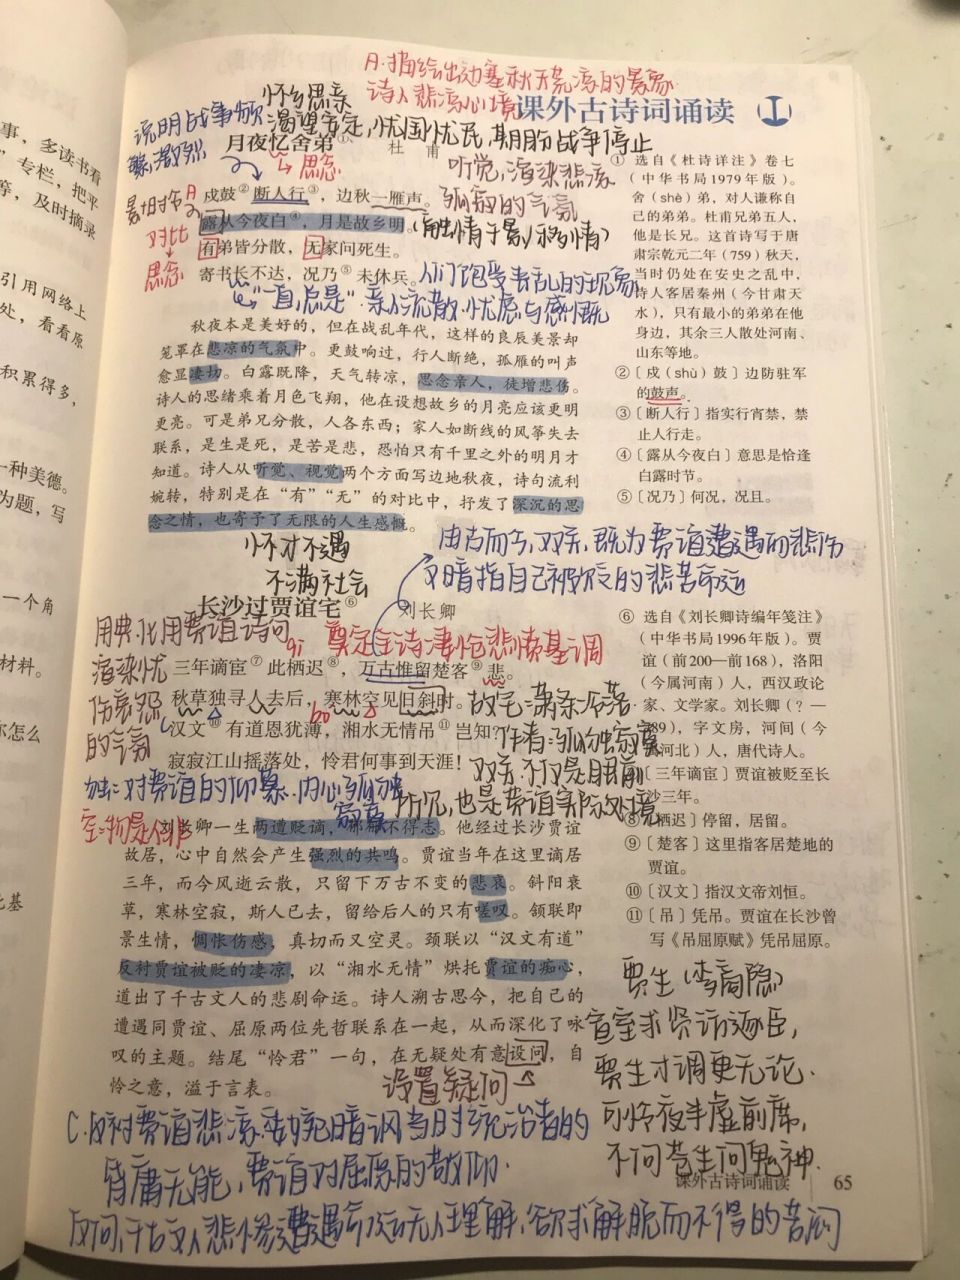 事，多读书看
”专栏，把平
等，及时摘录
引用网络上
处，看看原
积累得多，
一种美德。
为题，写
一个角
材料。
你怎么
基
A.描绘出边塞秋天荒凉的景象
诗人悲凉心境
课外古诗词诵读
怀乡思亲
渴望安定，忧国忧民，期盼战争停止
说明战事频
繁，激烈
月夜忆舍弟①
杜 甫
思念
听觉，渲染悲凉
孤寂的气氛
戍鼓②断人行③，边秋一雁声。
露从今夜白④，月是故乡明。
(触情于景/移情)
有弟皆分散，无家问死生。
寄书长不达，况乃⑤未休兵。
对比
思念
人们饱受丧乱的现象
“一直,总是”.亲人流散.忧虑与感慨
秋夜本是美好的，但在战乱年代，这样的良辰美景却
笼罩在悲凉的气氛中。更鼓响过，行人断绝，孤雁的叫声
愈显凄切。白露既降，天气转凉，思念亲人，徒增悲伤。
诗人的思绪乘着月色飞翔，他在设想故乡的月亮应该更明
更亮。可是弟兄分散，人各东西；家人如断线的风筝失去
联系，是生是死，是苦是悲，恐怕只有千里之外的明月才
知道。诗人从听觉、视觉两个方面写边地秋夜，诗句流利
婉转，特别是在“有”“无”的对比中，抒发了深沉的思
念之情，也寄予了无限的人生感慨。
① 选自《杜诗详注》卷七
（中华书局1979年版）。
舍（shè）弟，对人谦称自
己的弟弟。杜甫兄弟五人，
他是长兄。这首诗写于唐
肃宗乾元二年（759）秋天，
当时仍处在安史之乱中，
诗人客居秦州（今甘肃天
水），只有最小的弟弟在他
身边，其余三人散处河南、
山东等地。
②〔戍（shù）鼓〕边防驻军
的鼓声。
③〔断人行〕指实行宵禁，禁
止人行走。
④〔露从今夜白〕意思是恰逢
白露时节。
⑤〔况乃〕何况，况且。
怀才不遇
不满社会
由古而今，双关，既为贾谊遭遇而悲伤
又暗指自己被贬的悲苦命运
长沙过贾谊宅⑥
刘长卿
用典，化用贾谊诗句
奠定全诗凄怆悲愤基调
渲染忧
伤哀怨
的气氛
三年谪宦⑦此栖迟⑧，万古惟留楚客⑨悲。
秋草独寻人去后，寒林空见日斜时。
汉文⑩有道恩犹薄，湘水无情吊⑪岂知？
寂寂江山摇落处，怜君何事到天涯！
故宅：萧条冷落
作者：孤独寂寞
双关：不仅是眼前
所见，也是贾谊实际处境
独：对贾谊的仰慕.内心孤独
寂寞
空：物是人非
刘长卿一生两遭贬谪，郁郁不得志。他经过长沙贾谊
故居，心中自然会产生强烈的共鸣。贾谊当年在这里谪居
三年，而今风逝云散，只留下万古不变的悲哀。斜阳衰
草，寒林空寂，斯人已去，留给后人的只有嗟叹。颔联即
景生情，惆怅伤感，真切而又空灵。颈联以“汉文有道”
反衬贾谊被贬的凄凉，以“湘水无情”烘托贾谊的痴心，
道出了千古文人的悲剧命运。诗人溯古思今，把自己的
遭遇同贾谊、屈原两位先哲联系在一起，从而深化了咏
叹的主题。结尾“怜君”一句，在无疑处有意设问，自
怜之意，溢于言表。
设置疑问
⑥ 选自《刘长卿诗编年笺注》
（中华书局1996年版）。贾
谊（前200—前168），洛阳
（今属河南）人，西汉政论
家、文学家。刘长卿（？—
789），字文房，河间（今
河北）人，唐代诗人。
〔三年谪宦〕贾谊被贬至长
沙三年。
⑧〔栖迟〕停留，居留。
⑨〔楚客〕这里指客居楚地的
贾谊。
⑩〔汉文〕指汉文帝刘恒。
⑪〔吊〕凭吊。贾谊在长沙曾
写《吊屈原赋》凭吊屈原。
贾生（李商隐）
宣室求贤访逐臣，
贾生才调更无论.
可怜夜半虚前席，
不问苍生问鬼神.
C.反衬贾谊悲凉.委婉暗讽当时统治者的
昏庸无能，贾谊对屈原的敬仰.
反问,千古文人悲惨遭遇无人理解.欲求解脱而不得的苦闷
课外古诗词诵读 65